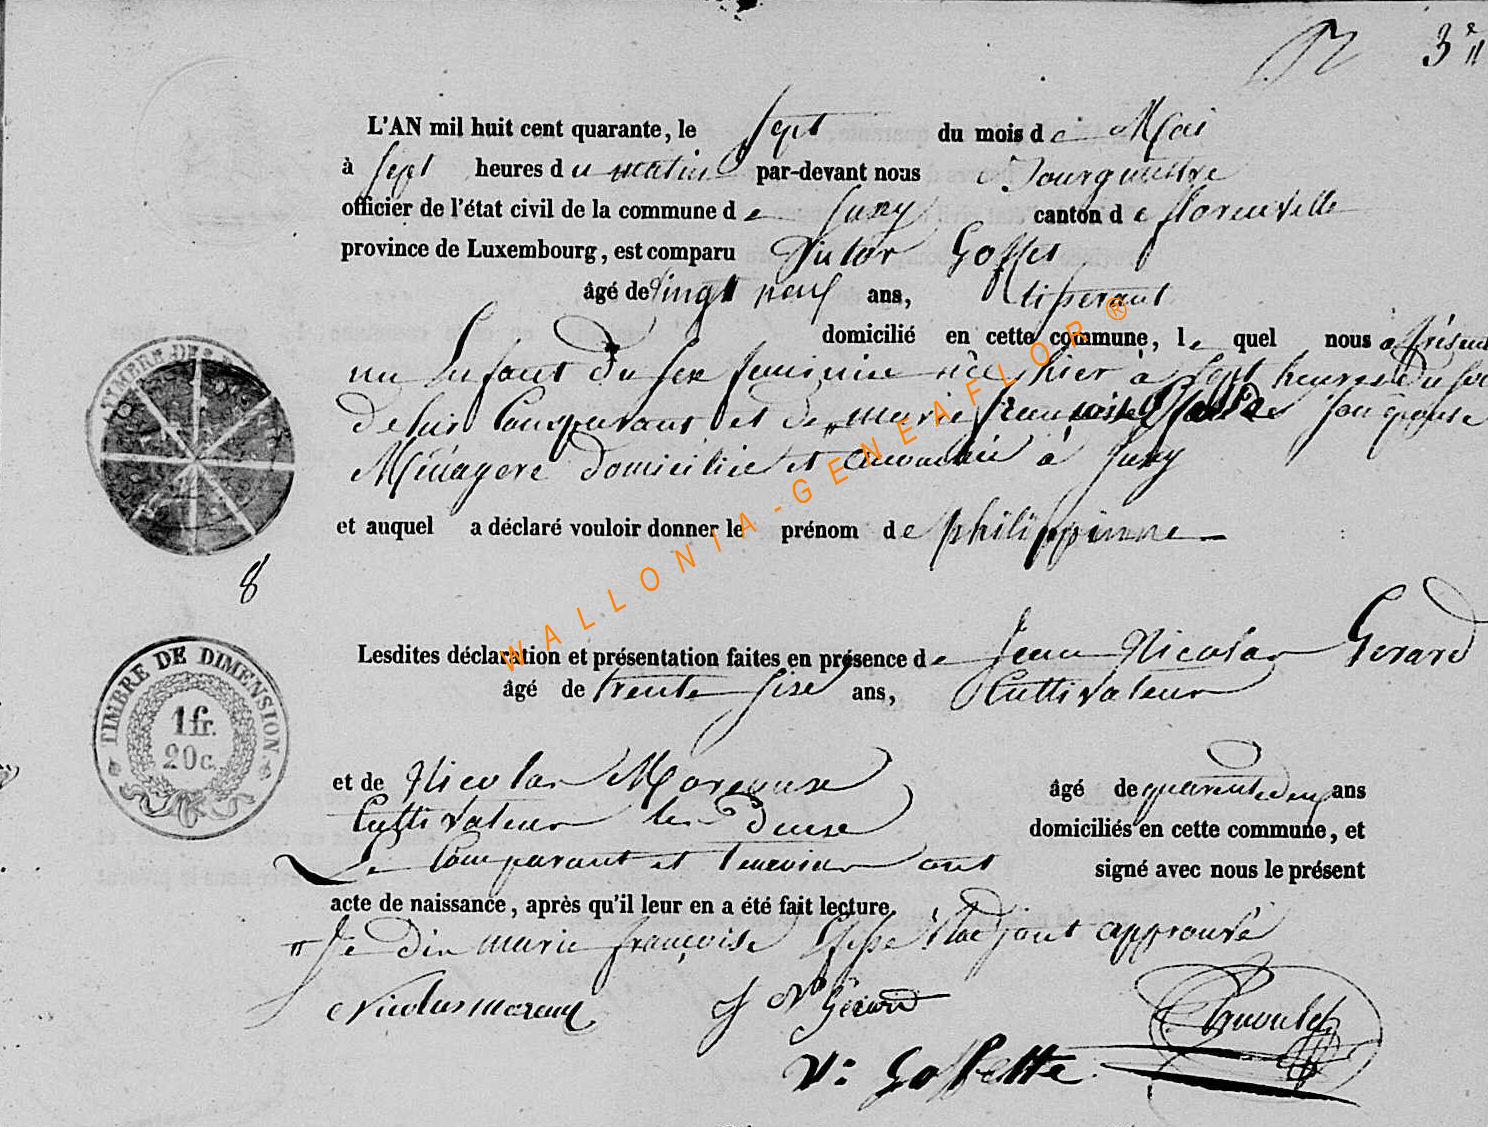 N 3e
L'AN mil huit cent quarante, le Sept du mois de Mai
à Sept heures du matin par-devant nous Bourguemestre
officier de l'état civil de la commune de Suxy canton de florenville
province de Luxembourg, est comparu Victor Goffet
âgé de Vingt neuf ans, Tisserant
domicilié en cette commune, le quel nous a présenté
un Enfant du Sex feminin née hier à Sept heures du soir
de lui Comparant et de marie francoise Son épouse
Ménagere domiciliée et accouchée à Suxy
et auquel a déclaré vouloir donner le prénom de philippinne
8
Lesdites déclaration et présentation faites en présence de Jean Nicolas Gerard
âgé de trente Sise ans, Cultivateur
et de Nicolas Moreause âgé de quarente deux ans
Cultivateur les Deuse domiciliés en cette commune, et
Le Comparant et temoins ont signé avec nous le présent
acte de naissance, après qu'il leur en a été fait lecture
Je Dis marie françoise approuvé
Nicolas moreau J N Gérard
V: Goffette
TIMBRE DE DIMENSION
1 fr.
20 c.
WALLONIA-GENEAFLOR ®